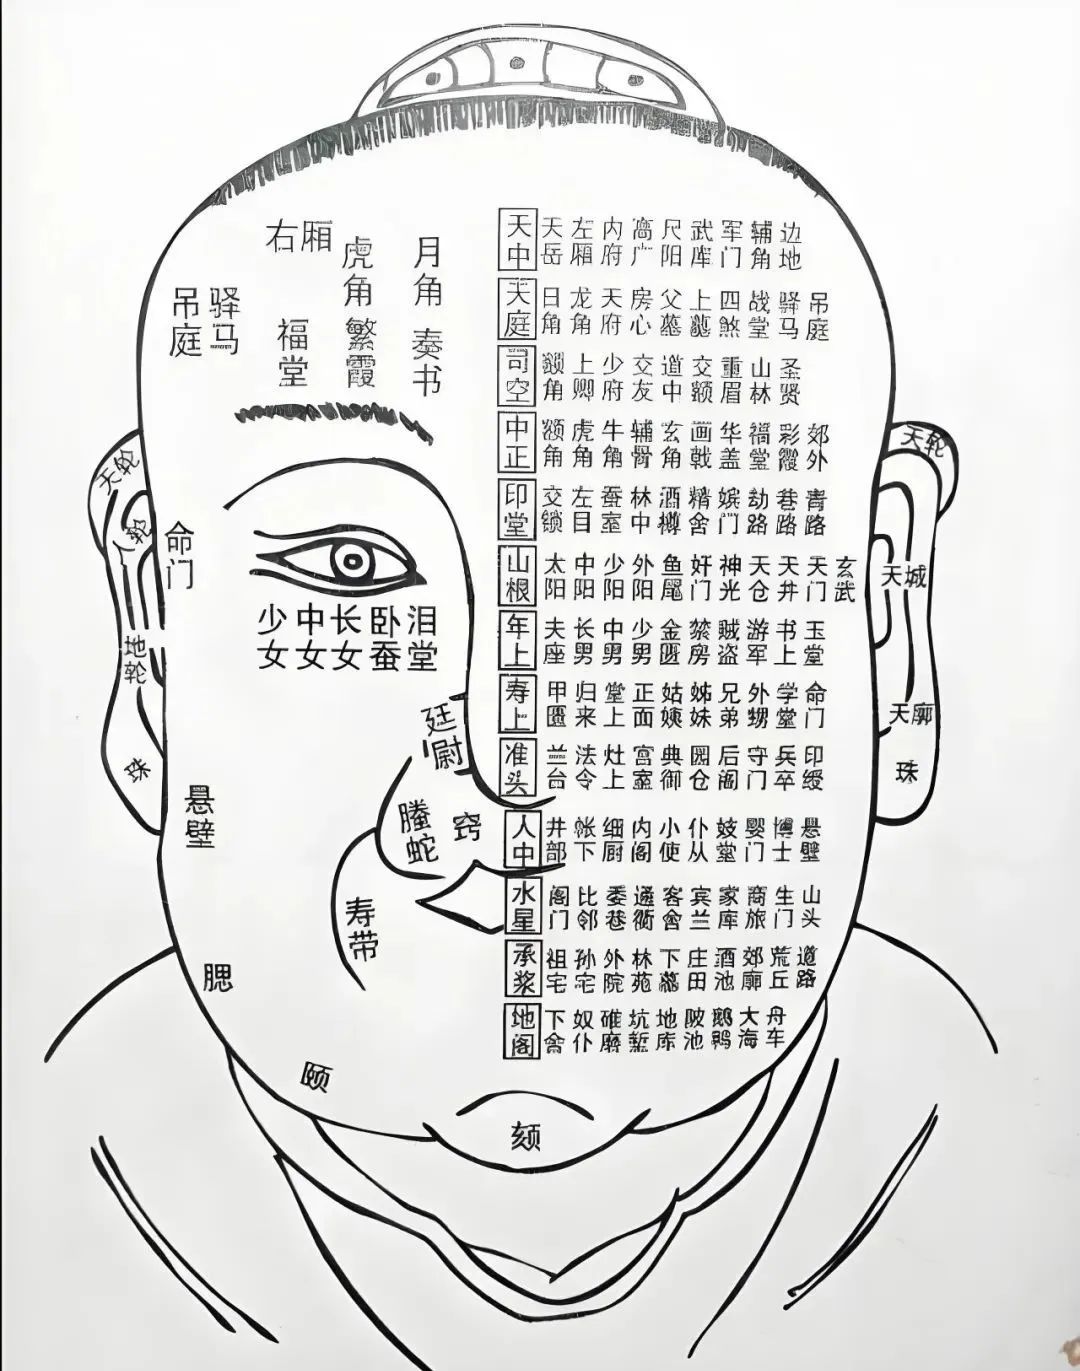 右厢
虎角
月角
吊庭
驿马
福堂
繁霞
奏书
天轮
人轮
命门
地轮
珠
少女 中女 长女 卧蚕 泪堂
廷尉
螣蛇
窍
悬壁
寿带
腮
颐
颏
天中 天岳 左厢 内府 高广 尺阳 武库 军门 辅角 边地
天庭 日角 龙角 天府 房心 父墓 上墓 四煞 战堂 驿马 吊庭
司空 额角 上卿 少府 交友 道中 交额 重眉 山林 圣贤
中正 额角 虎角 牛角 辅骨 玄角 画戟 华盖 福堂 彩霞 郊外
印堂 交锁 左目 蚕室 林中 酒樽 精舍 嫔门 劫路 巷路 青路
山根 太阳 中阳 少阳 外阳 鱼尾 奸门 神光 天仓 天井 天门 玄武
年上 夫座 长男 中男 少男 金匮 禁房 贼盗 游军 书上 玉堂
寿上 甲匮 归来 堂上 正面 姑姨 姊妹 兄弟 外甥 学堂 命门
准头 兰台 法令 灶上 宫室 典御 圆仓 后阁 守门 兵卒 印绶
人中 井部 帐下 细厨 内阁 小使 仆从 妓堂 婴门 博士 悬壁
水星 阁门 比邻 委巷 通衢 客舍 宾兰 家库 商旅 生门 山头
承浆 祖宅 孙宅 外院 林苑 下墓 庄田 酒池 郊廓 荒丘 道路
地阁 下舍 奴仆 碓磨 坑堑 地库 陂池 鹅鸭 大海 舟车
天轮
天城
天廓
珠